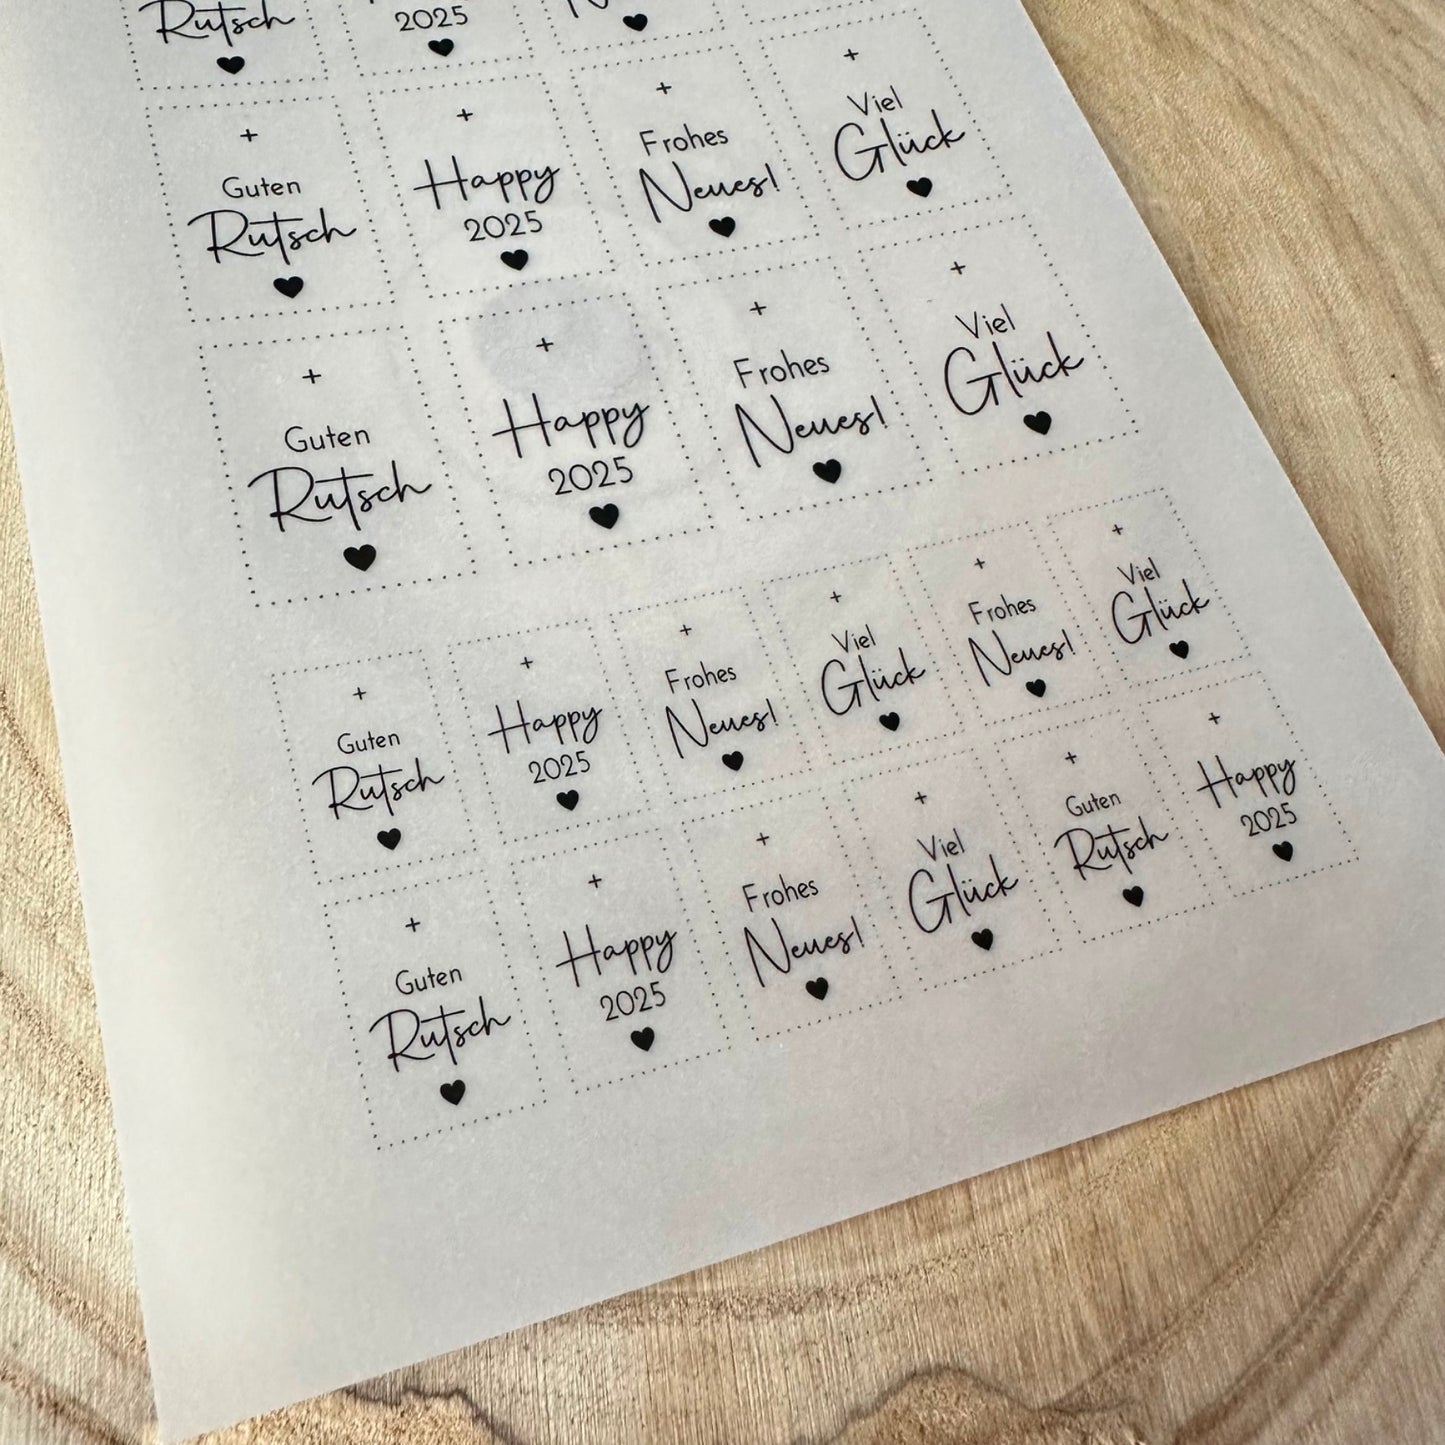 Rutsch
2025
+
Guten
Rutsch
+
Happy
2025
+
Frohes
Neues!
+
Viel
Glück
+
Guten
Rutsch
+
Happy
2025
+
Frohes
Neues!
+
Viel
Glück
+
Guten
Rutsch
+
Happy
2025
+
Frohes
Neues!
+
Viel
Glück
+
Frohes
Neues!
+
Viel
Glück
+
Guten
Rutsch
+
Happy
2025
+
Frohes
Neues!
+
Viel
Glück
+
Guten
Rutsch
+
Happy
2025